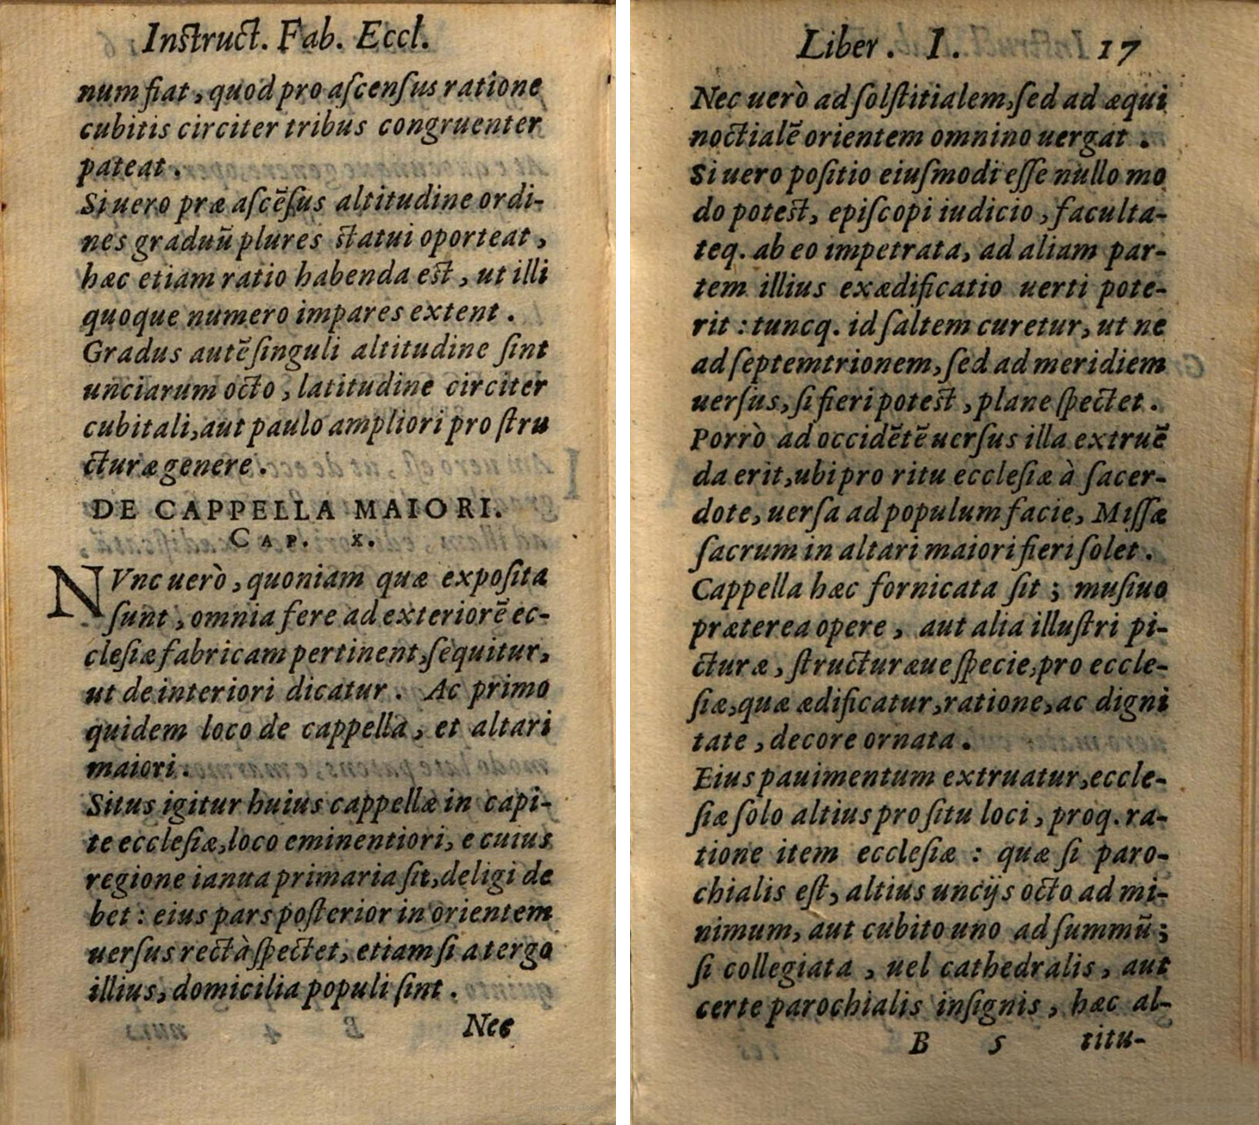 Instruct. Fab. Eccl.
num fiat, quod pro ascensus ratione
cubitis circiter tribus congruenter
pateat.
Si uero præ ascẽsus altitudine ordi-
nes graduũ plures statui oporteat,
hæc etiam ratio habenda est, ut illi
quoque numero impares extent.
Gradus autẽ singuli altitudine sint
unciarum octo, latitudine circiter
cubitali, aut paulo ampliori pro stru
cturæ genere.
DE CAPPELLA MAIORI.
CAP. X.
NVnc uerò, quoniam quæ exposita
sunt, omnia fere ad exteriorẽ ec-
clesiæ fabricam pertinent, sequitur,
ut de interiori dicatur. Ac primo
quidem loco de cappella, et altari
maiori.
Situs igitur huius cappellæ in capi-
te ecclesiæ, loco eminentiori, e cuius
regione ianua primaria sit, deligi de
bet: eius pars posterior in orientem
uersus rectà spectet, etiam si a tergo
illius, domicilia populi sint.
Nec
Liber. I. 17
Nec uerò ad solstitialem, sed ad æqui
noctialẽ orientem omnino uergat.
Si uero positio eiusmodi esse nullo mo
do potest, episcopi iudicio, faculta-
teq. ab eo impetrata, ad aliam par-
tem illius exædificatio uerti pote-
rit: tuncq. id saltem curetur, ut ne
ad septemtrionem, sed ad meridiem
uersus, si fieri potest, plane spectet.
Porrò ad occidẽtẽ uersus illa extruẽ
da erit, ubi pro ritu ecclesiæ à sacer-
dote, uersa ad populum facie, Missæ
sacrum in altari maiori fieri solet.
Cappella hæc fornicata sit; musiuo
præterea opere, aut alia illustri pi-
cturæ, structuræue specie, pro eccle-
siæ, quæ ædificatur, ratione, ac digni
tate, decore ornata.
Eius pauimentum extruatur, eccle-
siæ solo altius pro situ loci, proq. ra-
tione item ecclesiæ: quæ si paro-
chialis est, altius uncijs octo ad mi-
nimum, aut cubito uno ad summũ;
si collegiata, uel cathedralis, aut
certe parochialis insignis, hæc al-
B 5 titu-